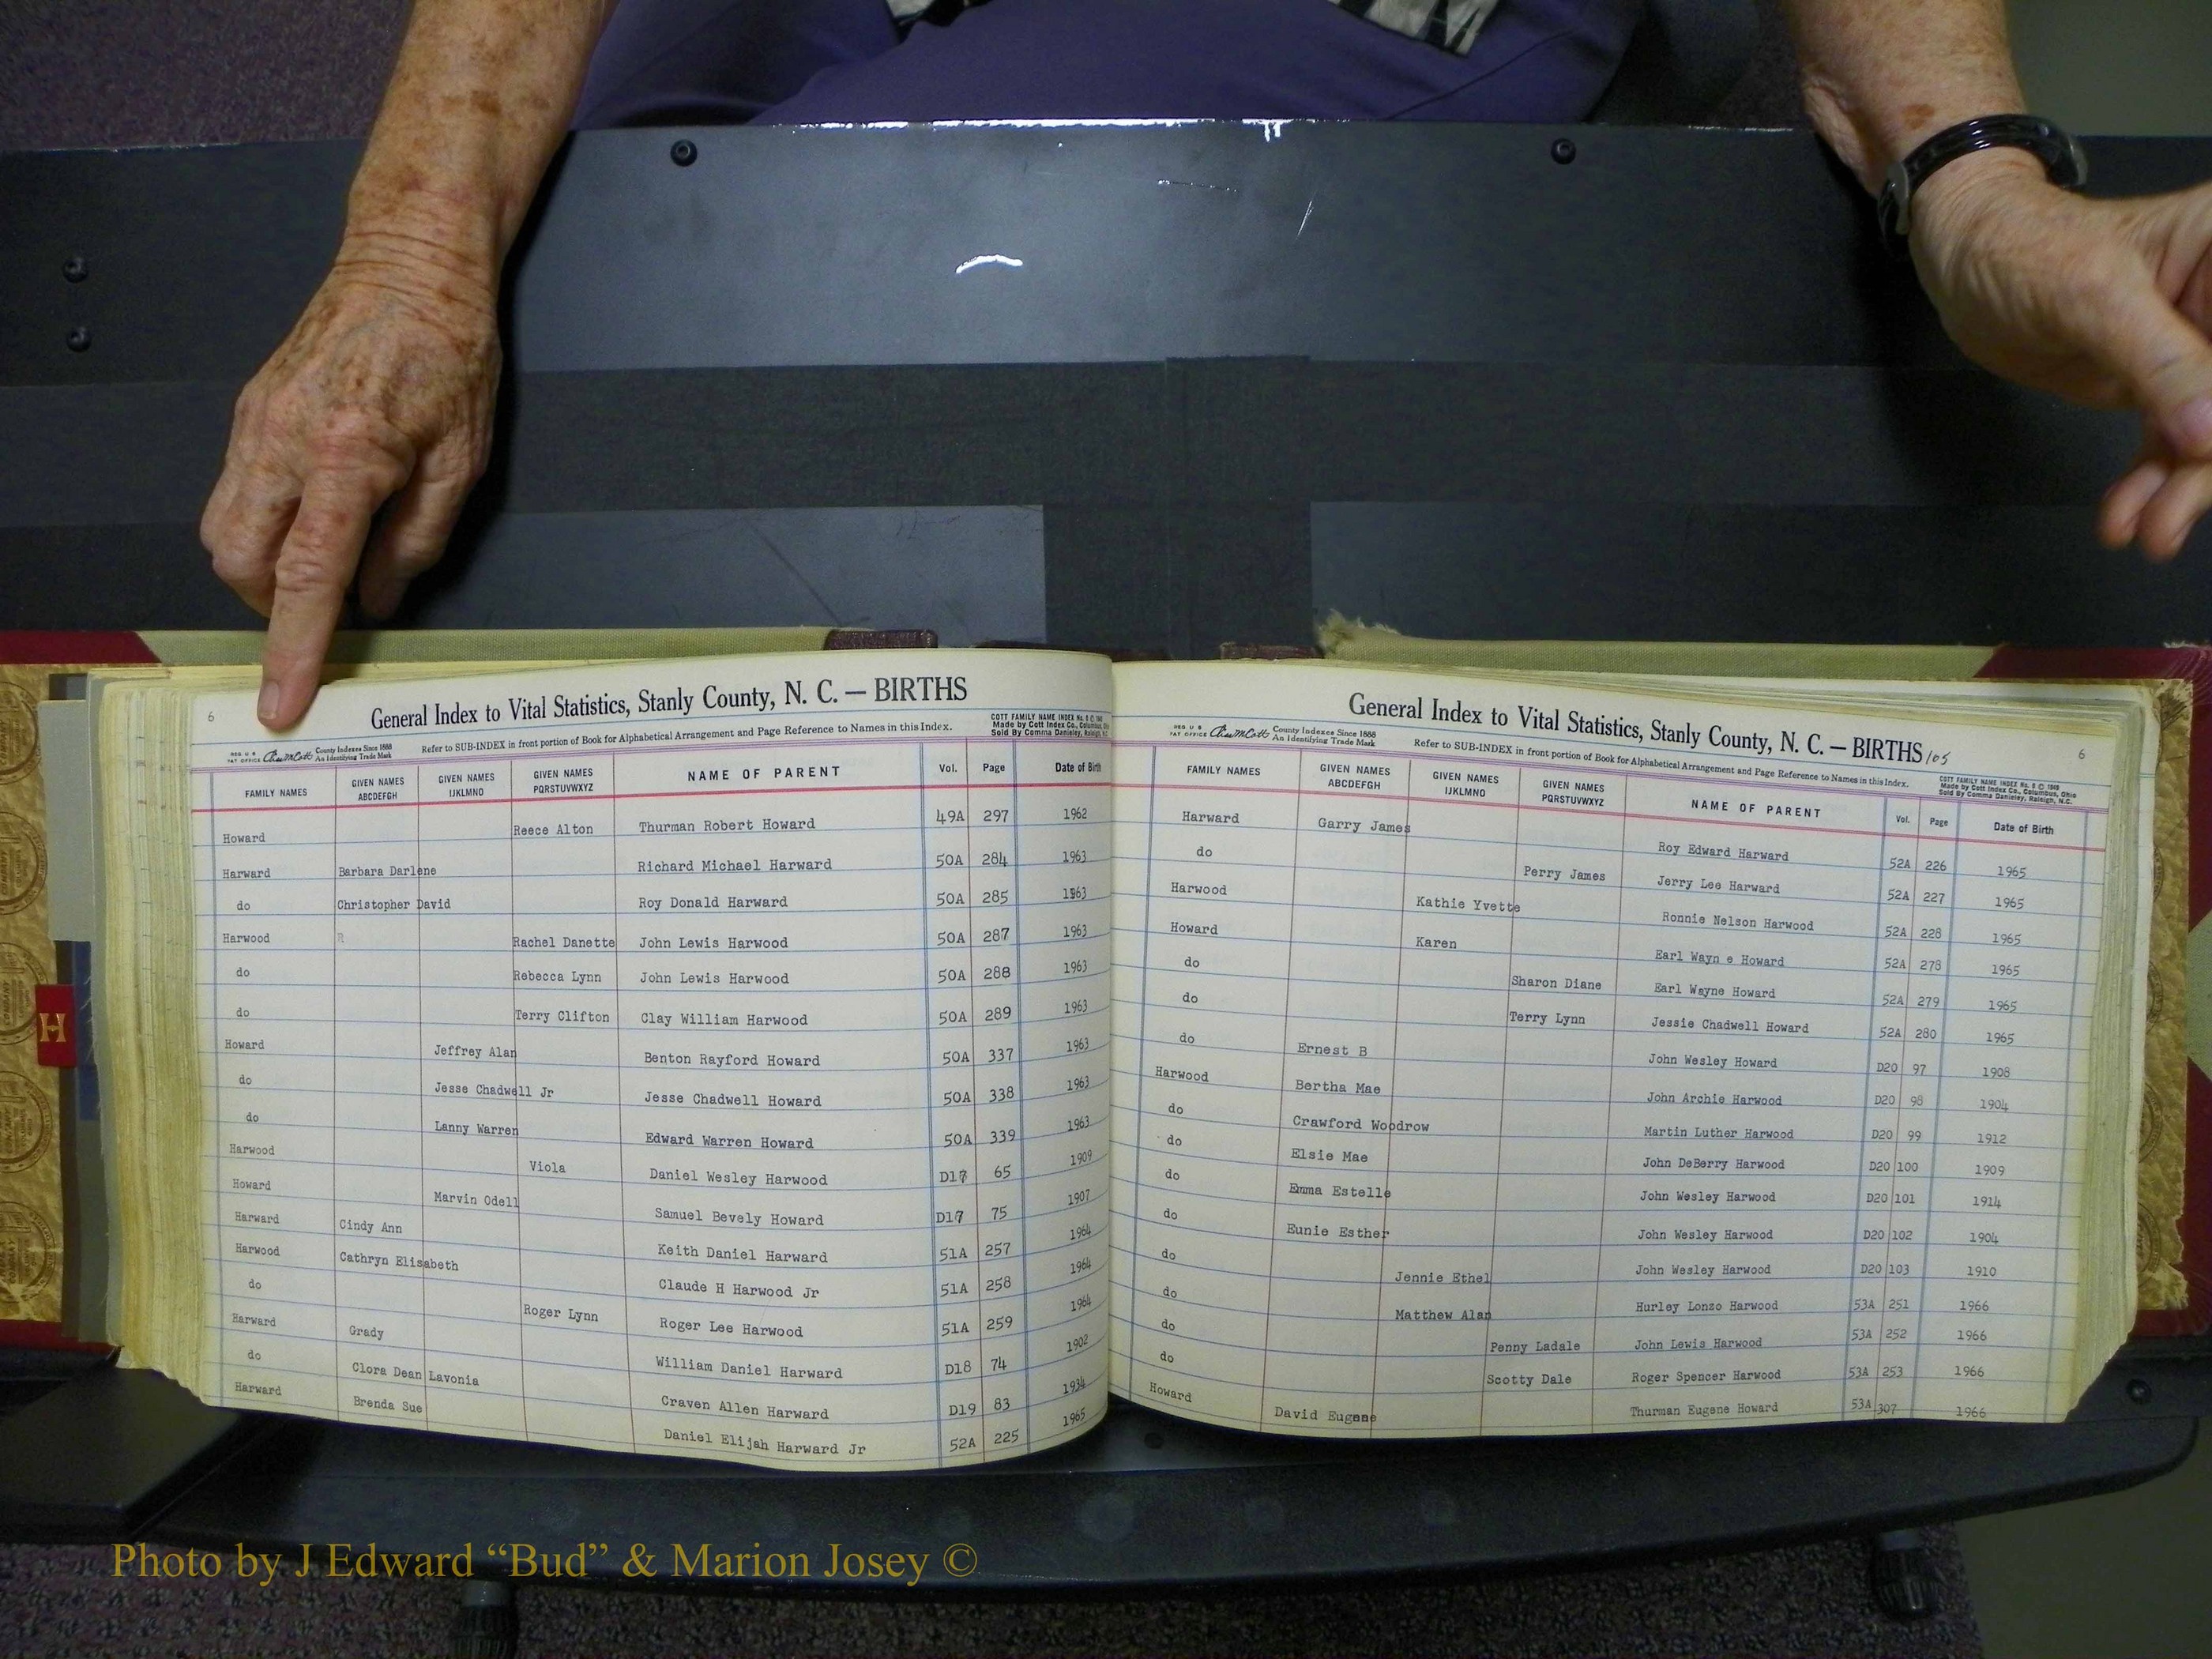 6
General Index to Vital Statistics, Stanly County, N. C. — BIRTHS
REG U S PAT OFFICE County Indexes Since 1888 An Identifying Trade Mark
Refer to SUB-INDEX in front portion of Book for Alphabetical Arrangement and Page Reference to Names in this Index.
COTT FAMILY NAME INDEX No. 6 ©
Made by Cott Index Co., Columbus,
Sold By Comma Danieley, Raleigh, N.C.
FAMILY NAMES GIVEN NAMES ABCDEFGH GIVEN NAMES IJKLMNO GIVEN NAMES PQRSTUVWXYZ NAME OF PARENT Vol. Page Date of Birth
Howard Reece Alton Thurman Robert Howard 49A 297 1962
Harward Barbara Darlene Richard Michael Harward 50A 284 1963
do Christopher David Roy Donald Harward 50A 285 1963
Harwood R Rachel Danette John Lewis Harwood 50A 287 1963
do Rebecca Lynn John Lewis Harwood 50A 288 1963
do Terry Clifton Clay William Harwood 50A 289 1963
Howard Jeffrey Alan Benton Rayford Howard 50A 337 1963
do Jesse Chadwell Jr Jesse Chadwell Howard 50A 338 1963
do Lanny Warren Edward Warren Howard 50A 339 1963
Harwood Viola Daniel Wesley Harwood D17 65 1909
Howard Marvin Odell Samuel Bevely Howard D17 75 1907
Harward Cindy Ann Keith Daniel Harward 51A 257 1964
Harwood Cathryn Elisabeth Claude H Harwood Jr 51A 258 1964
do Roger Lynn Roger Lee Harwood 51A 259 1964
Harward Grady William Daniel Harward D18 74 1902
do Clora Dean Lavonia Craven Allen Harward D19 83 1934
Harward Brenda Sue Daniel Elijah Harward Jr 52A 225 1965
General Index to Vital Statistics, Stanly County, N. C. — BIRTHS 105
6
REG U S PAT OFFICE County Indexes Since 1888 An Identifying Trade Mark
Refer to SUB-INDEX in front portion of Book for Alphabetical Arrangement and Page Reference to Names in this Index.
COTT FAMILY NAME INDEX No. 6 ©
Made by Cott Index Co., Columbus, Ohio
Sold By Comma Danieley, Raleigh, N.C.
FAMILY NAMES GIVEN NAMES ABCDEFGH GIVEN NAMES IJKLMNO GIVEN NAMES PQRSTUVWXYZ NAME OF PARENT Vol. Page Date of Birth
Harward Garry James Roy Edward Harward 52A 226 1965
do Perry James Jerry Lee Harward 52A 227 1965
Harwood Kathie Yvette Ronnie Nelson Harwood 52A 228 1965
Howard Karen Earl Wayn e Howard 52A 278 1965
do Sharon Diane Earl Wayne Howard 52A 279 1965
do Terry Lynn Jessie Chadwell Howard 52A 280 1965
do Ernest B John Wesley Howard D20 97 1908
Harwood Bertha Mae John Archie Harwood D20 98 1904
do Crawford Woodrow Martin Luther Harwood D20 99 1912
do Elsie Mae John DeBerry Harwood D20 100 1909
do Emma Estelle John Wesley Harwood D20 101 1914
do Eunie Esther John Wesley Harwood D20 102 1904
do Jennie Ethel John Wesley Harwood D20 103 1910
do Matthew Alan Hurley Lonzo Harwood 53A 251 1966
do Penny Ladale John Lewis Harwood 53A 252 1966
do Scotty Dale Roger Spencer Harwood 53A 253 1966
Howard David Eugene Thurman Eugene Howard 53A 307 1966
H
Photo by J Edward “Bud” & Marion Josey ©